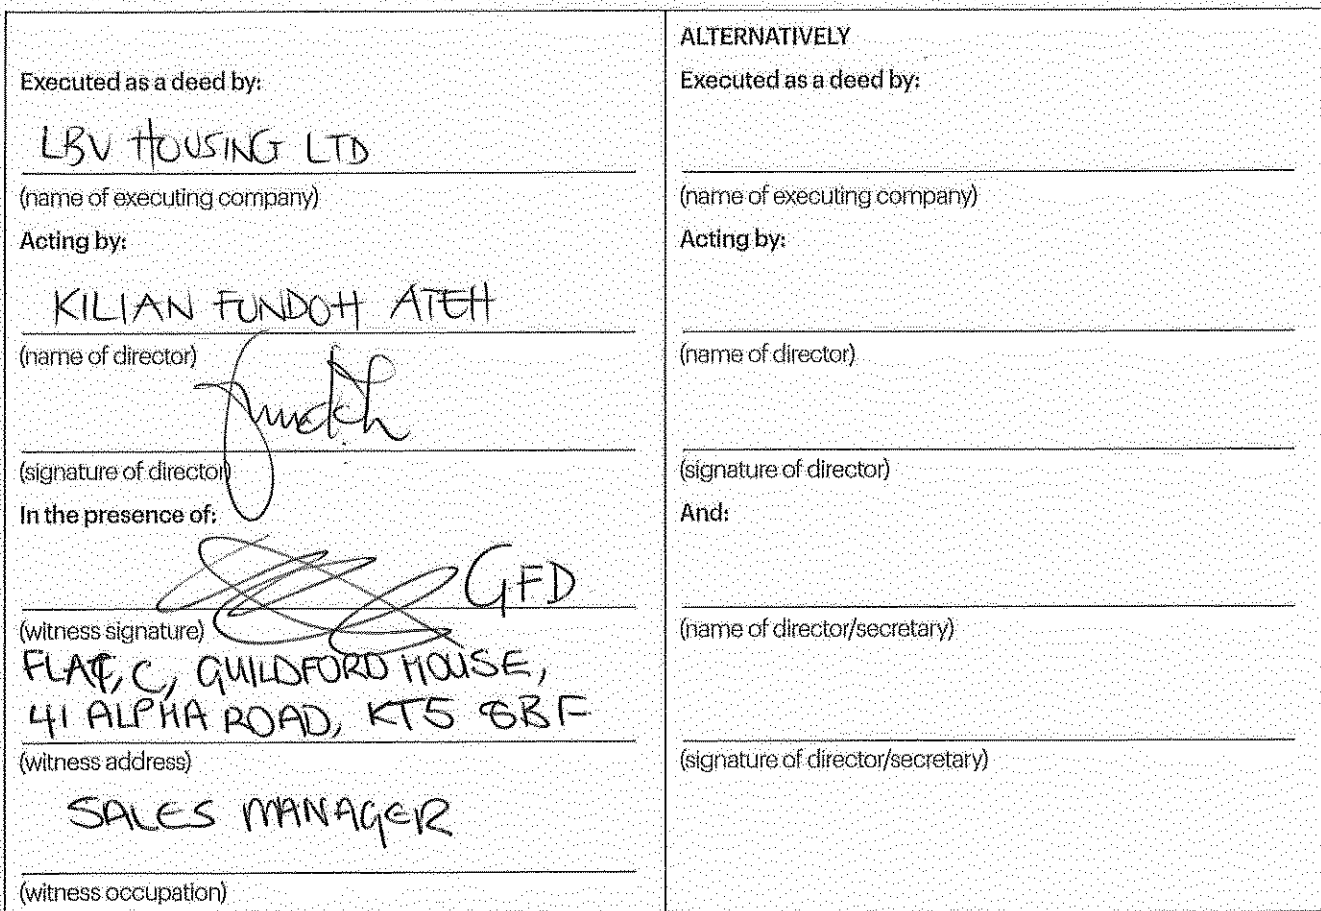 Executed as a deed by:
LBV HOUSING LTD
(name of executing company)
Acting by:
KILIAN FUNDOH ATEH
(name of director)
(signature of director)
In the presence of:
GFD
(witness signature)
FLAT, C, GUILDFORD HOUSE,
41 ALPHA ROAD, KT5 8BF
(witness address)
SALES MANAGER
(witness occupation)
ALTERNATIVELY
Executed as a deed by:
(name of executing company)
Acting by:
(name of director)
(signature of director)
And:
(name of director/secretary)
(signature of director/secretary)